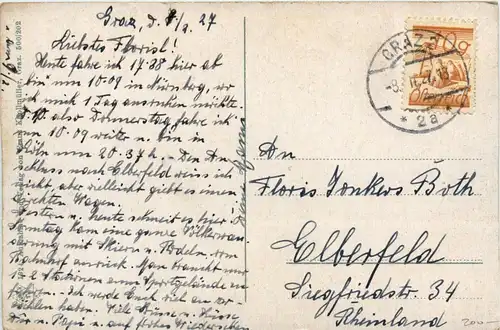 Graz, d. 8/2. 27
Liebstes Florisl!
Heute fahre ich 17·38 hier ab
bin um 10·09 in Nürnberg, wo
ich mich 1 Tag ausruhen möchte.
also Donnerstag fahre ich
um 10·09 weiter u. bin in
Köln um 20·37 h. Den An
schluss nach Elberfeld weiss ich
nicht, aber vielleicht giebt es einen
direkten Wagen.
Gestern u. heute schneit es hier.
Sonntag kam eine ganze Völkerwan
derung mit Skiern u. Rodeln vom
Bahnhof zurück. Man braucht nur
1-2 Stationen zum Sportgelände zu
fahren. Ich werde Euch viel zu er
zählen haben. Viele Grüsse u. Küsse
Papi u. auf frohes Wiedersehen
GRAZ 2
* 2a *
An
Floris Jonkers Both
Elberfeld
Siegfriedstr. 34
Rheinland